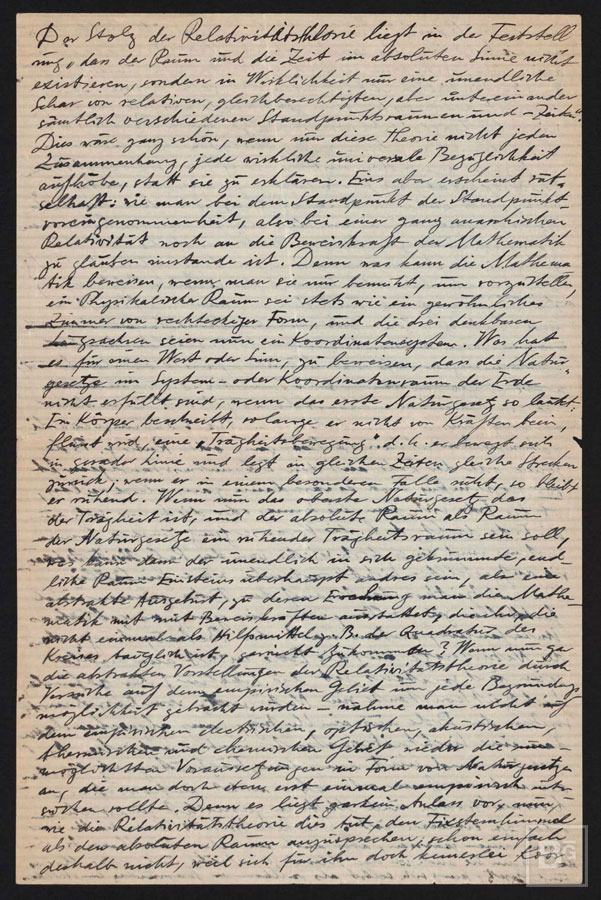 Der Stolz der Relativitätstheorie liegt in der Feststell
ung, dass der Raum und die Zeit im absoluten Sinne nicht
existieren, sondern in Wirklichkeit nur eine unendliche
Schar von relativen, gleichberechtigten, aber untereinander
sämtlich verschiedenen Standpunktsräumen und -Zeiten".
Dies wäre ganz schön, wenn nur diese Theorie nicht jeden
Zusammenhang, jede wirkliche universale Bezüglichkeit
aufhöbe, statt sie zu erklären. Eins aber erscheint rät-
selhaft: wie man bei dem Standpunkt der Standpunkt
voreingenommenheit, also bei einer ganz anarchischen
Relativität noch an die Beweiskraft der Mathematik
zu glauben imstande ist. Denn was kann die Mathema
tik beweisen, wenn man sie nur bemüht, um vorzustellen,
ein Physikalischer Raum sei stets wie ein gewöhnliches
Zimmer von rechteckiger Form, und die drei denkbaren
seien nun ein Koordinatensystem. Was hat
es für einen Wert oder Sinn, zu beweisen, dass die Natur
gesetze im System- oder Koordinatenraum der Erde
nicht erfüllt sind, wenn das erste Naturgesetz so lautet:
Ein Körper beschreibt, solange er nicht von Kräften beein,
flusst wird, eine „Trägheitsbewegung" d. h. er bewegt sich
in gerader Linie und legt in gleichen Zeiten gleiche Strecken
zurück; wenn er in einem besonderen Falle ruht, so bleibt
er ruhend. Wenn nun das oberste Naturgesetz das
der Trägheit ist, und der absolute Raum als Raum
der Naturgesetze ein ruhender Trägheitsraum sein soll,
was kann dann der unendlich in sich gekrümmte, end-
liche Raum Einsteins überhaupt andres sein, als eine
abstrakte Ausgeburt, zu deren man die Mathe-
matik mit Beweiskräften ausstattet, die ihr, die
nicht einmal als Hilfsmittel z. B. der Quadratur des
Kreises tauglich ist, garnicht zukommen? Wenn nun gar
die abstrakten Vorstellungen der Relativitätstheorie durch
Versuche auf dem empirischen Gebiet um jede Begründungs
möglichkeit gebracht würden – nähme man nicht auf
dem empirischen electrischen, optischen, akustischen,
thermischen und chemischen Gebiet wieder die un-
möglichsten Voraussetzungen in Form von Naturgesetzen
an, die man doch eben erst einmal empirisch unter
suchen sollte. Denn es liegt garkein Anlass vor,
wie die Relativitätstheorie dies tut, den Fixsternhimmel
als den absoluten Raum anzusprechen, schon einfach
deshalb nicht, weil sich für ihn doch keinerlei Koor-